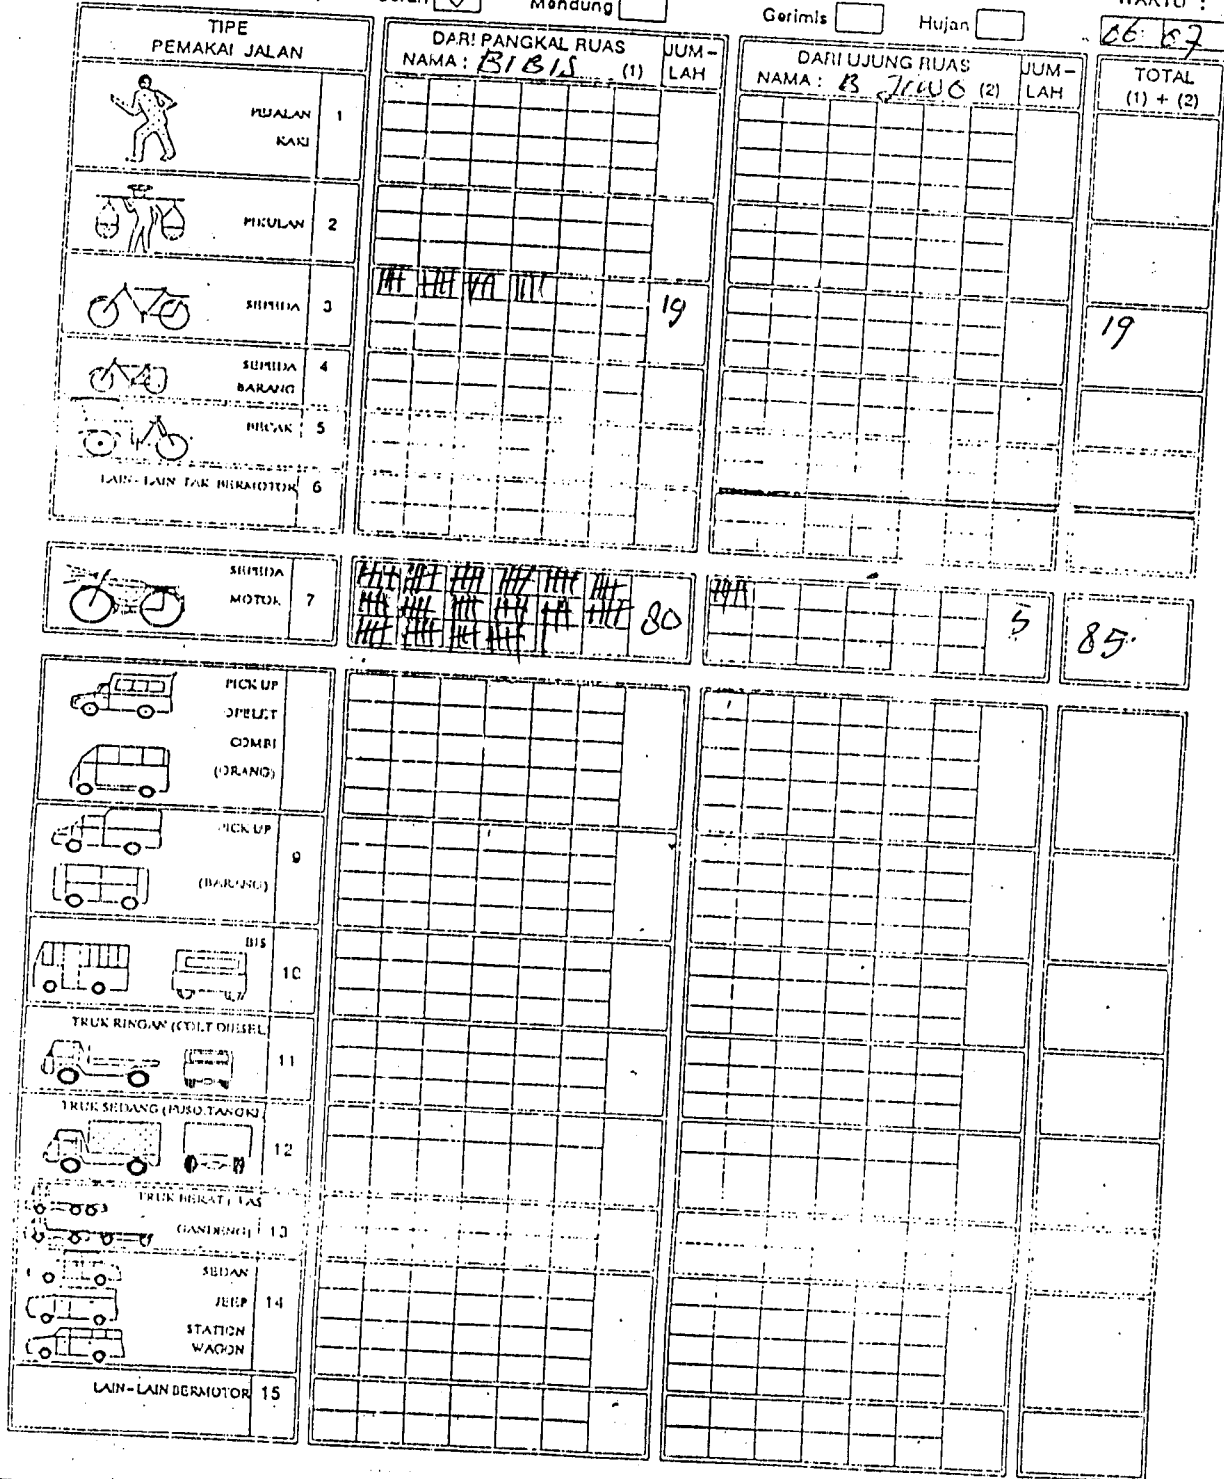 Mendung
Gerimis
Hujan
WAKTU :
06 07
TIPE
PEMAKAI JALAN
DARI PANGKAL RUAS
NAMA : BIBIS (1)
JUM-
LAH
DARI UJUNG RUAS
NAMA : B (2)
JUM-
LAH
TOTAL
(1) + (2)
PEJALAN
KAKI
1
PIKULAN 2
SEPEDA 3
19
19
SEPEDA
BARANG
4
BECAK 5
LAIN-LAIN TAK BERMOTOR 6
SEPEDA
MOTOR 7
80
5
85
PICK UP
OPELET
COMBI
(ORANG)
PICK UP
(BARANG)
9
BIS
10
TRUK RINGAN (COLT DIESEL
11
TRUK SEDANG (FUSO,TANGKI
12
TRUK BERAT
GANDENG) 13
SEDAN
JEEP 14
STATION
WAGON
LAIN-LAIN BERMOTOR 15